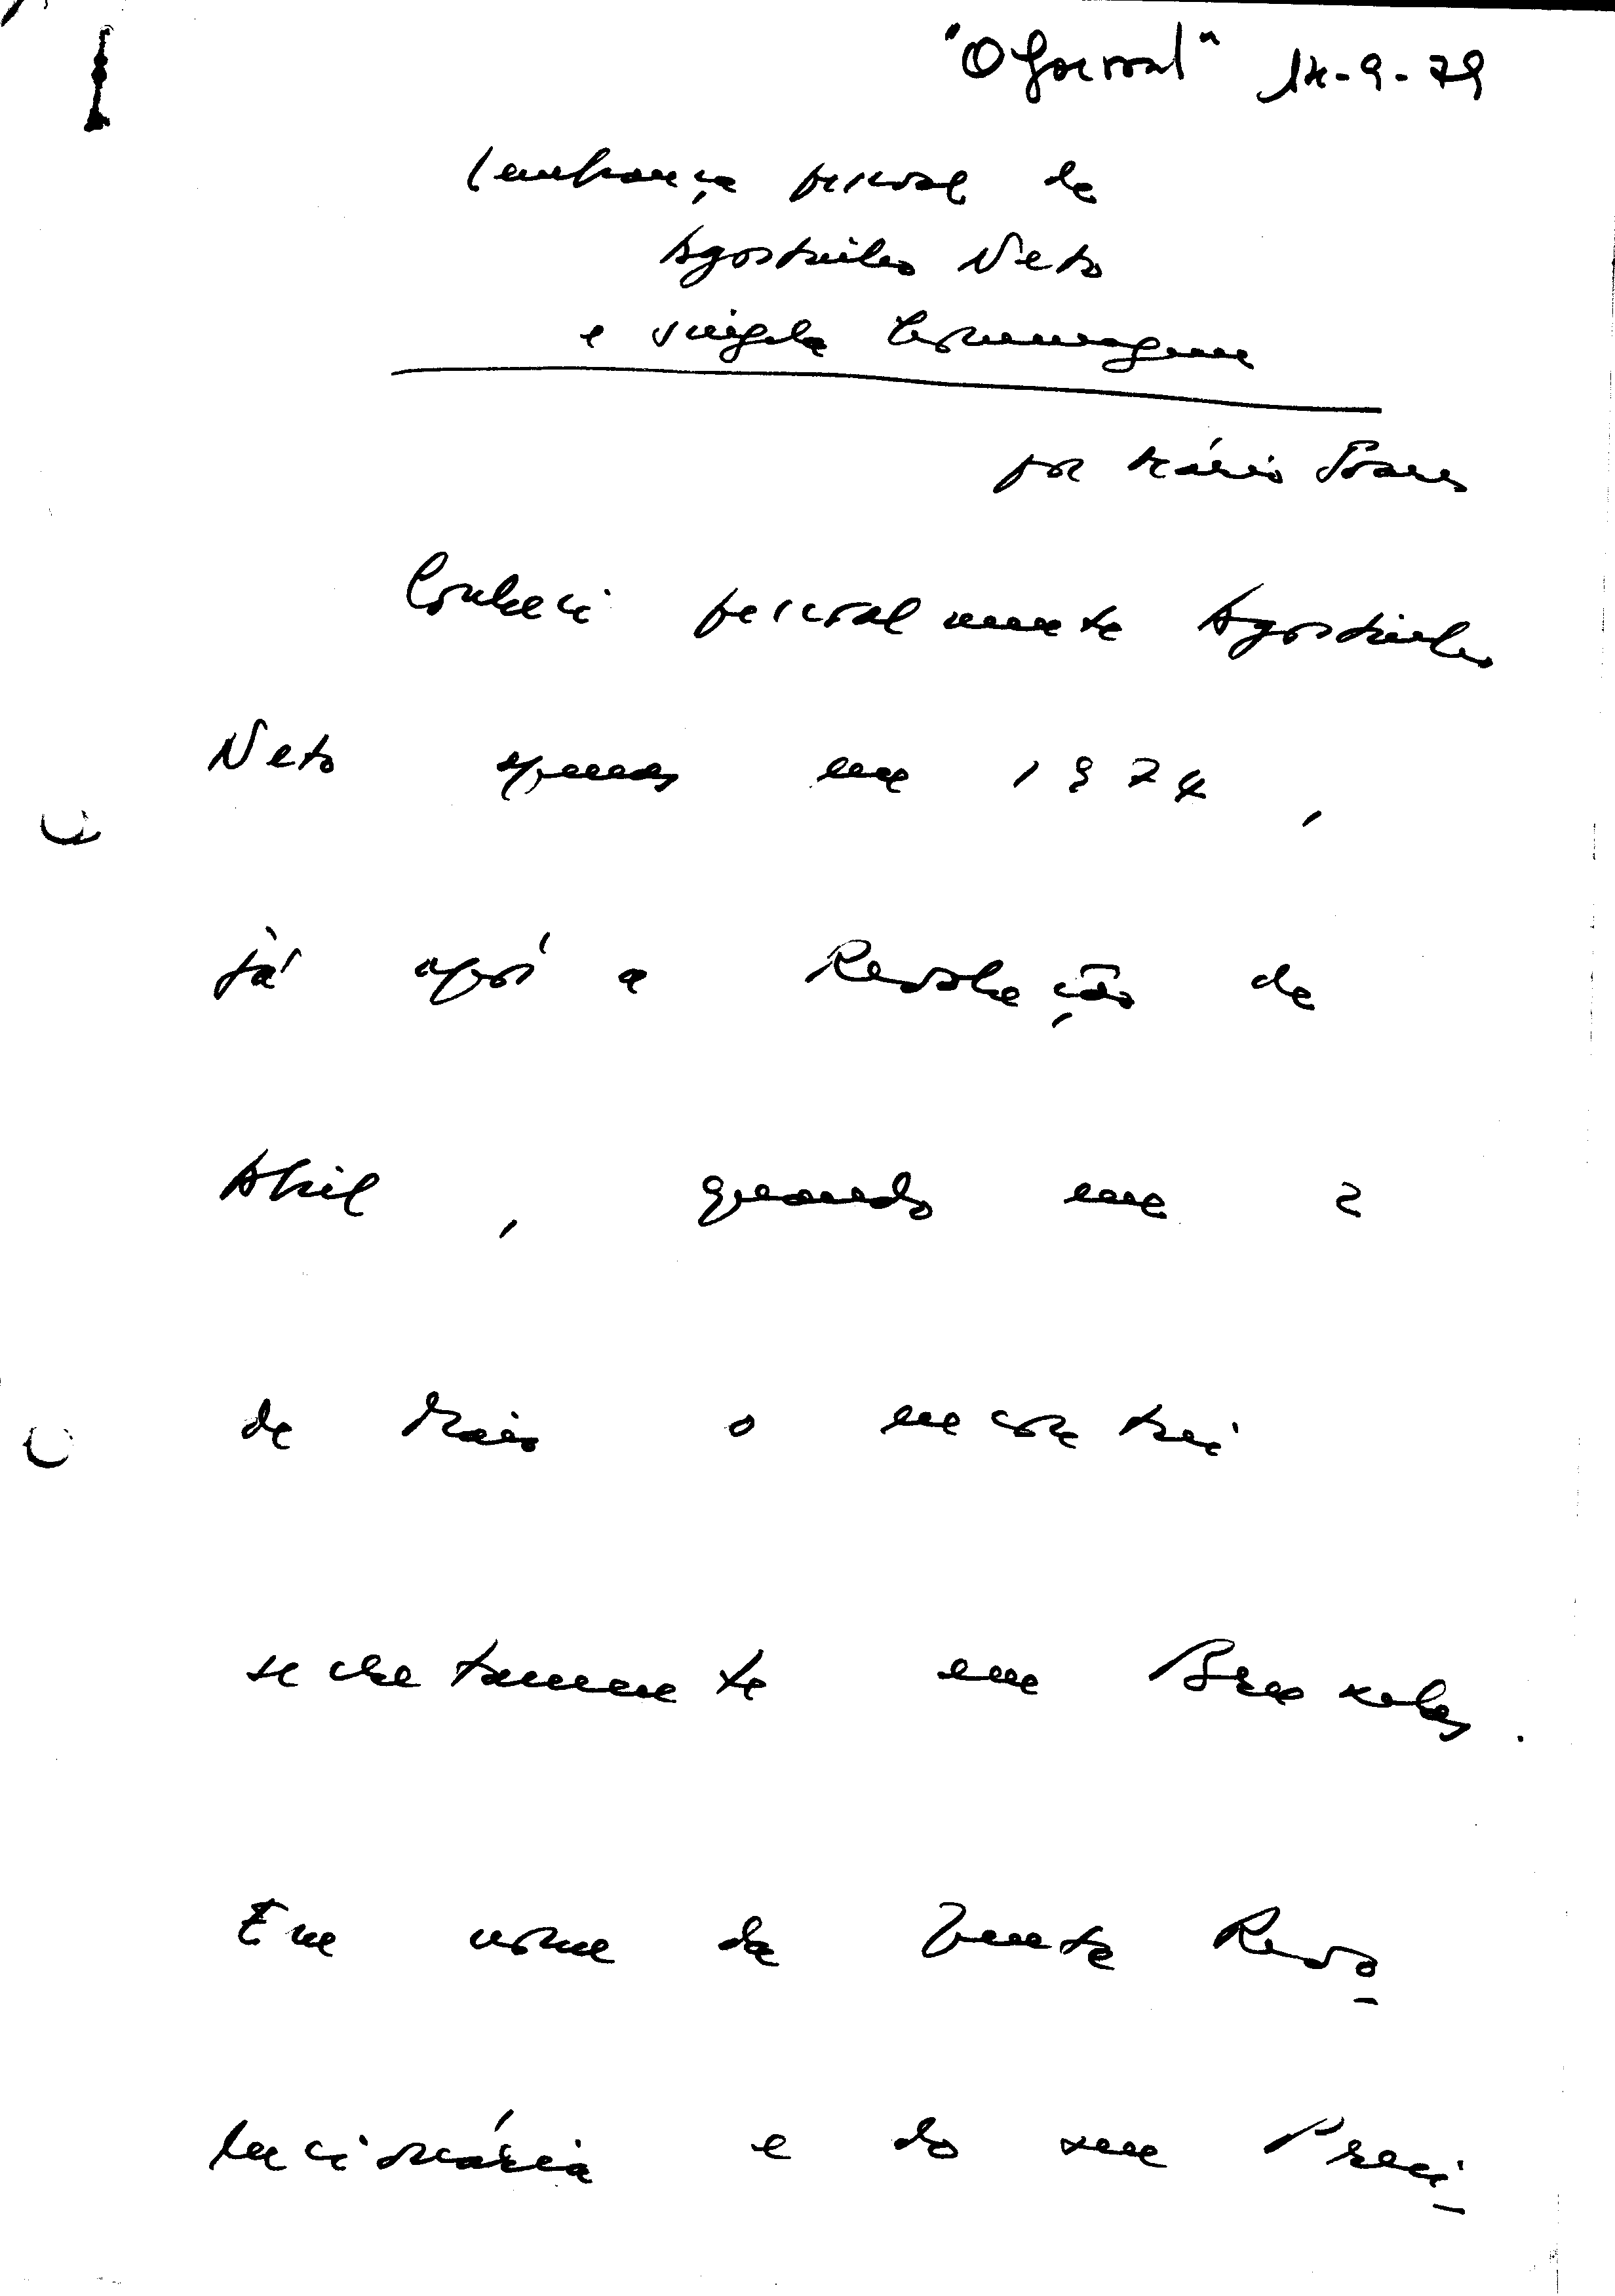 "O Jornal" 14-9-79
Lembrança pessoal de
Agostinho Neto
e singela homenagem
por Mário Soares
Conheci pessoalmente Agostinho
Neto apenas em 1974,
já após a Revolução de
Abril, quando em 2
de Maio o encontrei
secretamente em Bruxelas.
Em nome da Junta Revo
lucionária e do seu Presi